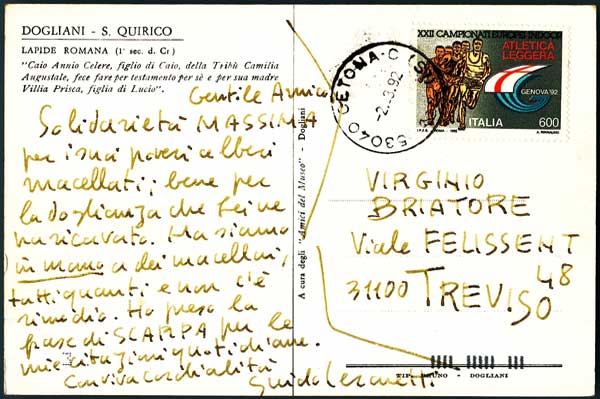 DOGLIANI - S. QUIRICO
LAPIDE ROMANA (1° sec. d. Cr.)
"Caio Annio Celere, figlio di Caio, della Tribù Camilia
Augustale, fece fare per testamento per sè e per sua madre
Villia Prisca, figlia di Lucio".
Gentile Amico
Solidarietà MASSIMA
per i suoi poveri alberi
macellati; bene per
la doglianza che Lei ne
ha ricavato. Ma siamo
in mano a dei macellai,
tutti quanti e non c'è
rimedio. Ho preso la
frase di SCARPA per le
mie citazioni quotidiane.
Con viva cordialità
Guido Ceronetti
A cura degli "Amici del Museo" - Dogliani
53040 CETONA
-2.3.92
XXII CAMPIONATI EUROPEI INDOOR
ATLETICA
LEGGERA
GENOVA '92
ITALIA
600
VIRGINIO
BRIATORE
Viale FELISSENT
48
31100 TREVISO
TIP. BRUNO - DOGLIANI